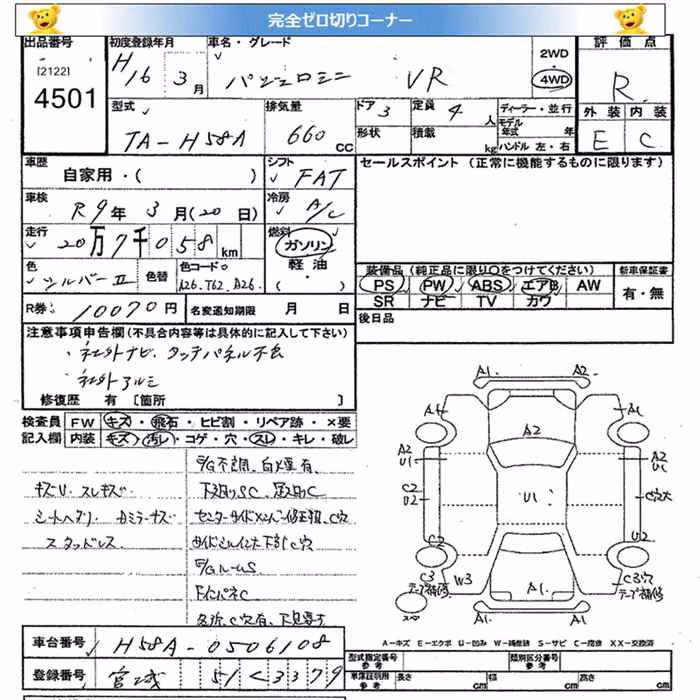 完全ゼロ切りコーナー
出品番号 [2122] 4501
初度登録年月 H16年 3月
車名・グレード パジェロミニ VR
2WD 4WD
評価点 R
外装 E 内装 C
型式 TA-H58A
排気量 660 CC
ドア 3 形状
定員 4人 積載 kg
ディーラー・並行
モデル年式 年
ハンドル 左・右
車歴 自家用・( )
シフト FAT
セールスポイント (正常に機能するものに限ります)
車検 R9年 3月(20日)
冷房 A/C
走行 20万7千058km
燃料 ガソリン 軽油
色 シルバーII 色替
色コード A26.T62.A26
装備品 (純正品に限り○をつけてください)
新車保証書
PS PW ABS エアB AW
SR ナビ TV カワ
有・無
R券 10070円
名変通知期限 月 日
後日品
注意事項申告欄 (不具合内容等は具体的に記入して下さい)
・社外ナビ タッチパネル不良
社外アルミ
修復歴 有 [箇所 ]
検査員記入欄
FW キズ・飛石・ヒビ割・リペア跡・×要
内装 キズ・汚レ・コゲ・穴・スレ・キレ・破レ
E/G不調、白煙有、
キズU. スレキズ 下廻りSC、足廻りC
C穴
スタッドレス
サイドシルインナ下部C穴
E/GルームS
FインパネC
各所、C穴有、下見要す
A1 A2
A1 A1
A2
A2 U1 A2 U1
C2 U2 U1 C穴大
C2 U2
C3 テープ補修 W3 C3穴 テープ補修
A1
スペア A1 A1
A-キズ E-エクボ U-凹み W-補修跡 S-サビ C-腐食 XX-交換済
車台番号 H58A-0506108
型式指定番号 参考
類別区分番号 参考
登録番号 宮城 51 く 3379
車庫証明用 参考 長さ cm 幅 cm 高さ cm